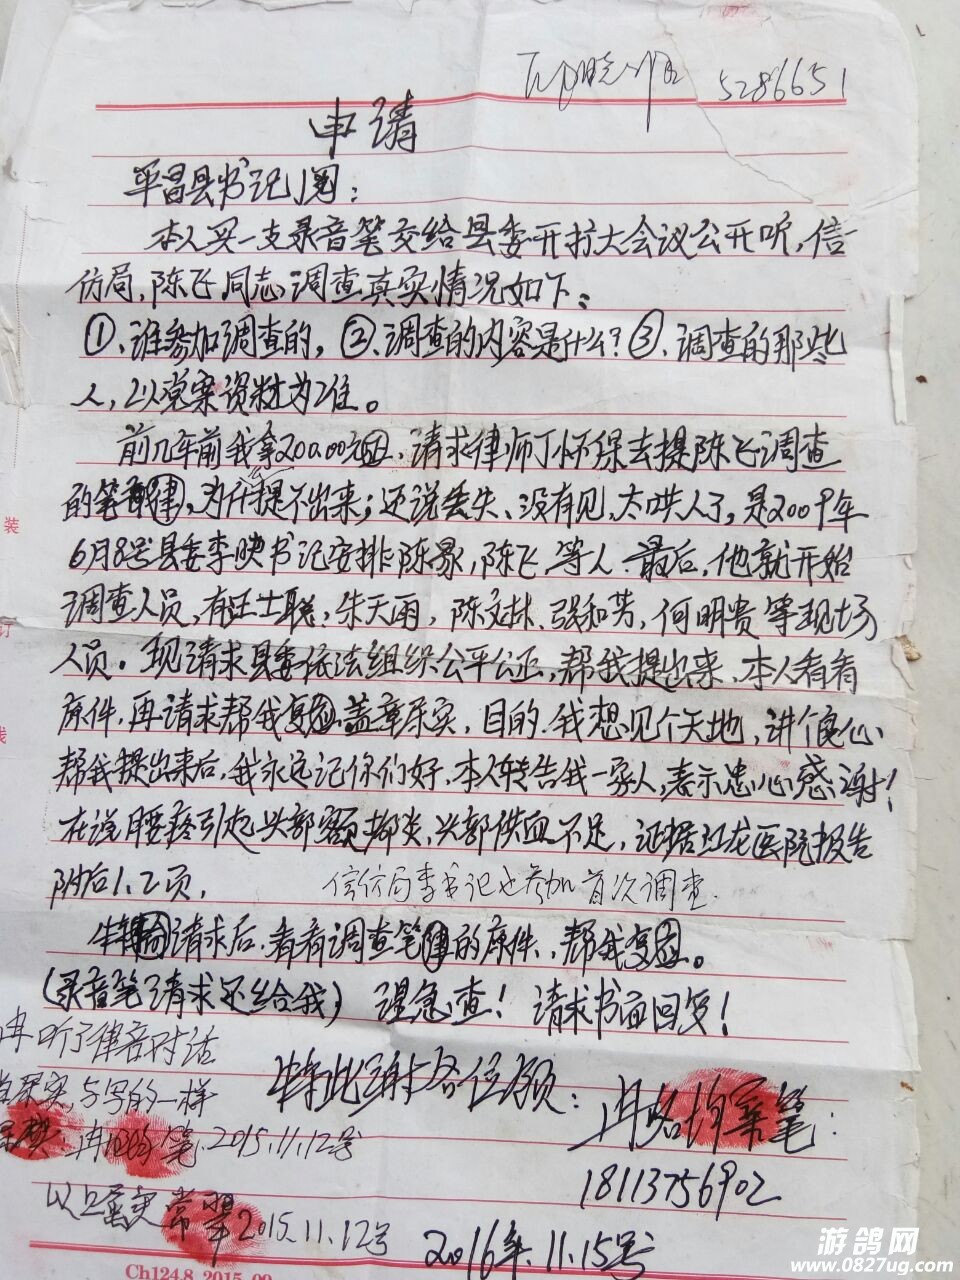 5286651
申请
平昌县书记阅:
本人买一支录音笔交给县委开扩大会议公开听,信
访局,陈飞同志调查真实情况如下:
①、谁参加调查的,②、调查的内容是什么?③、调查的那些
人,以党案资料为准。
前几年前我拿200.00元,请求律师丁怀保去提陈飞调查
的笔,为什提不出来;还说丢失、没有见,太哄人了,是2009年
6月8号县委李映书记安排陈易,陈飞,等人.最后,他就开始
调查人员,有汪士聪,朱天雨,陈文林、张和芳,何明贵等现场
人员。现请求县委依法组织公平公正,帮我提出来,本人看看
原件,再请求帮我复,盖章乐实,目的.我想见个天地,讲个良心
帮我提出来后,我永远记你们好,本人转告我一家人,表示忠心感谢!
在说腰疼引起头部额炎,头部供血不足,证据江龙医院报告
附后1、2页,
信访局李书记也参加首次调查
请求后,看看调查笔的原件,帮我复。
(录音笔请求还给我) 望急查!请求书面回复!
再听了律音对话
乐实,与写的一样
笔.2015.11.12号
特此谢各位领:
笔:
18113756902
以上
2015.11.12号
2016年.11.15号
装
订
线
Ch124.8 2015.09
游鸽网
www.0827ug.com